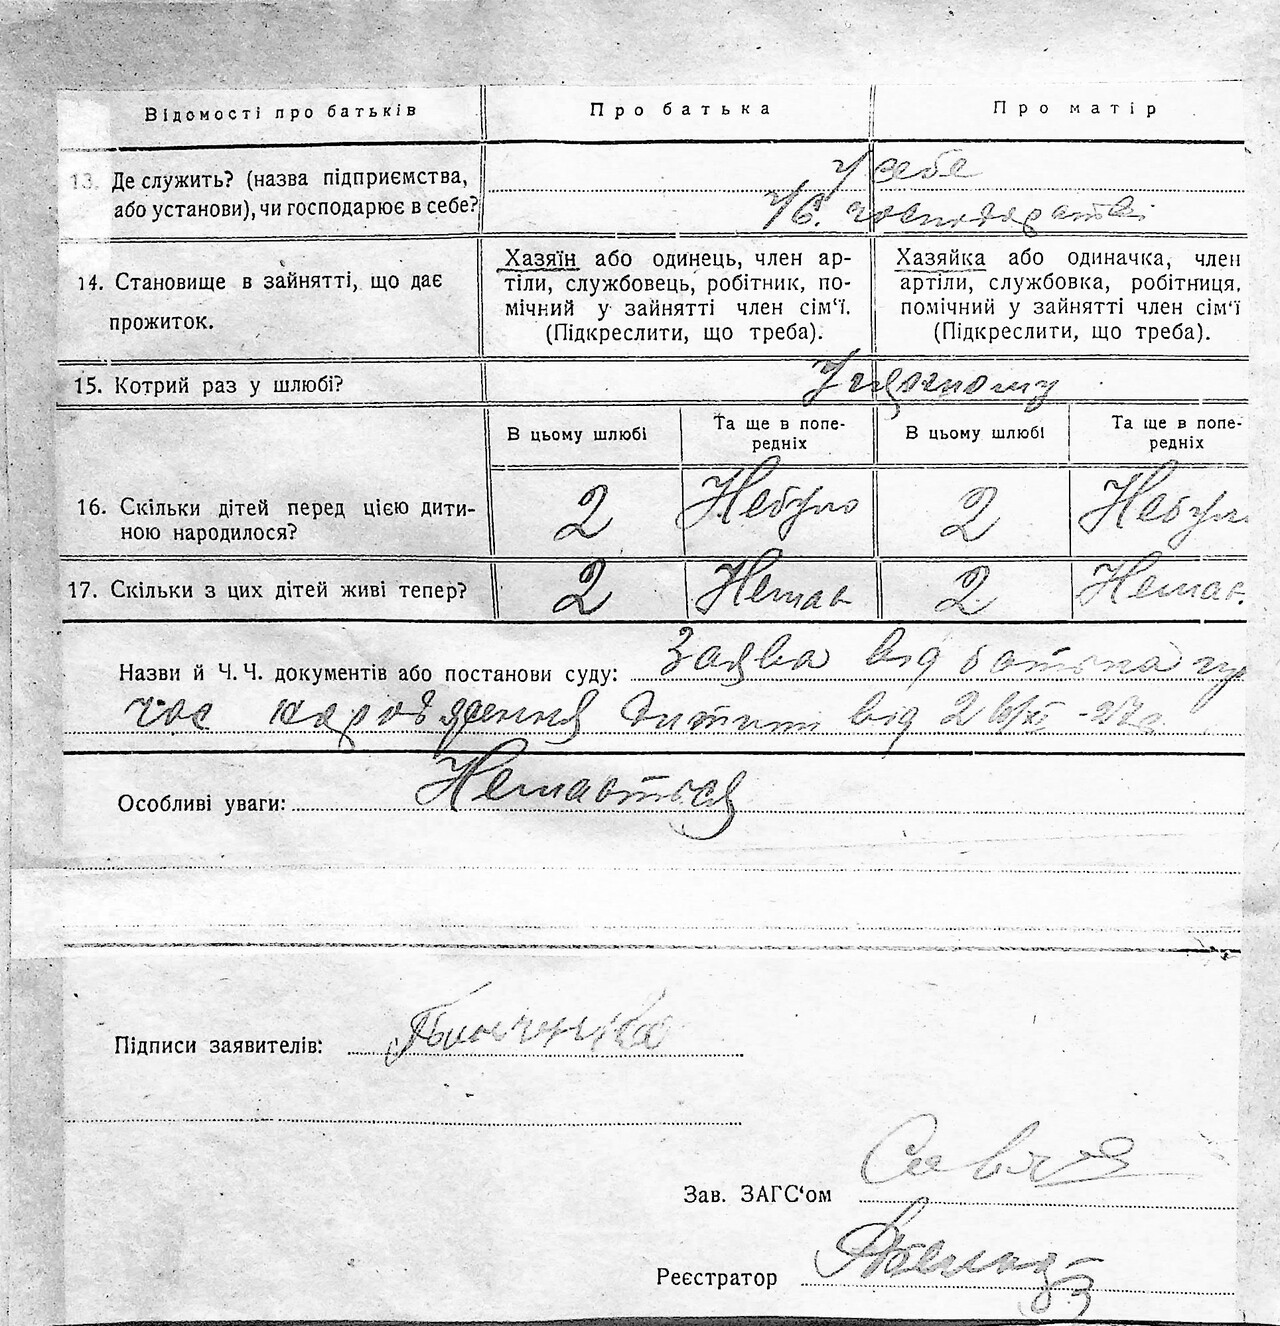 Відомості про батьків
Про батька
Про матір
13. Де служить? (назва підприємства,
або установи), чи господарює в себе?
У себе
У с. господарстві
14. Становище в зайнятті, що дає
прожиток.
Хазяїн або одинець, член ар-
тіли, службовець, робітник, по-
мічний у зайнятті член сім'ї.
(Підкреслити, що треба).
Хазяйка або одиначка, член
артіли, службовка, робітниця,
помічний у зайнятті член сім'ї
(Підкреслити, що треба).
15. Котрий раз у шлюбі?
У
В цьому шлюбі
Та ще в попе-
редніх
В цьому шлюбі
Та ще в попе-
редніх
16. Скільки дітей перед цією дити-
ною народилося?
2
Небуло
2
Небуло
17. Скільки з цих дітей живі тепер?
2
Немає
2
Немає.
Назви й Ч. Ч. документів або постанови суду: Заява від батька пр
час народження дитини від 26/XI-27р.
Особливі уваги: Немається
Підписи заявителів:
Зав. ЗАГС'ом
Реєстратор